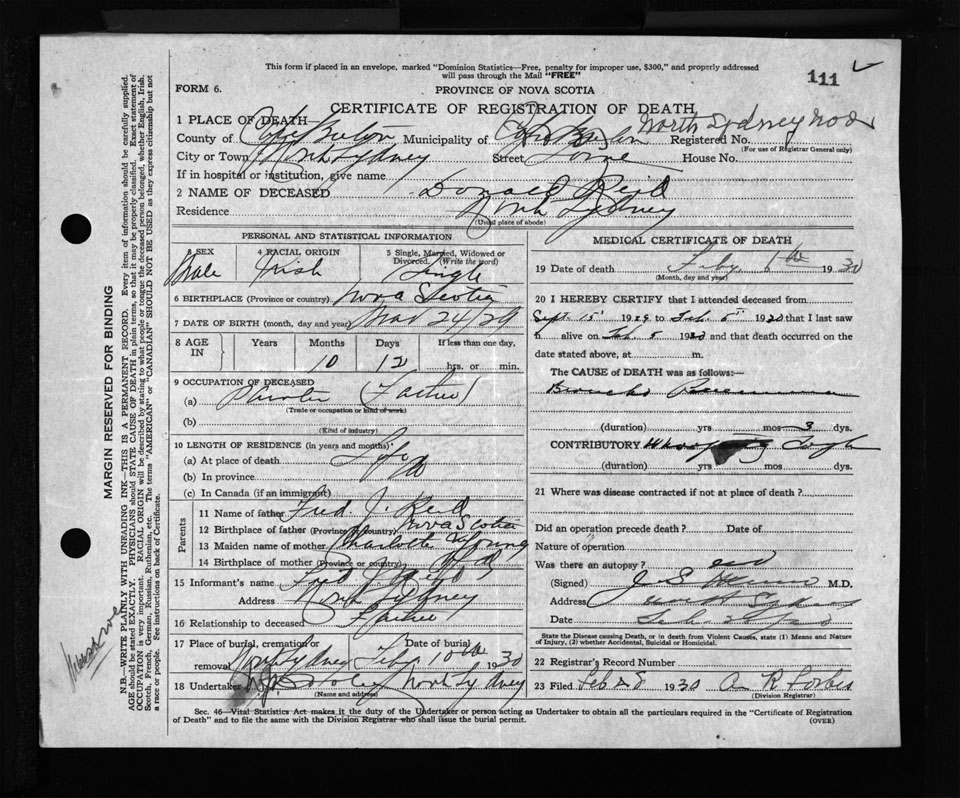 This form if placed in an envelope, marked "Dominion Statistics—Free, penalty for improper use, $300," and properly addressed
will pass through the Mail "FREE"
111
FORM 6.
PROVINCE OF NOVA SCOTIA
CERTIFICATE OF REGISTRATION OF DEATH
1 PLACE OF DEATH—
North Sydney
County of Cape Breton Municipality of Cape Breton Registered No.
(For use of Registrar General only)
City or Town North Sydney Street Lorne House No.
If in hospital or institution, give name
2 NAME OF DECEASED Donald Reid
Residence North Sydney
(Usual place of abode)
PERSONAL AND STATISTICAL INFORMATION
3 SEX 4 RACIAL ORIGIN 5 Single, Married, Widowed or Divorced. (Write the word)
Male Irish Single
6 BIRTHPLACE (Province or country) Nova Scotia
7 DATE OF BIRTH (month, day and year) Mar 24/29
8 AGE IN Years Months Days If less than one day.
10 12 hrs. or min.
9 OCCUPATION OF DECEASED
(a) Painter (Father)
(Trade or occupation or kind of work)
(b)
(Kind of industry)
10 LENGTH OF RESIDENCE (in years and months)
(a) At place of death Life
(b) In province
(c) In Canada (if an immigrant)
Parents
11 Name of father Fred J. Reid
12 Birthplace of father (Province or country) Nova Scotia
13 Maiden name of mother Charlotte Young
14 Birthplace of mother (Province or country)
15 Informant's name Fred J. Reid
Address North Sydney
16 Relationship to deceased Father
17 Place of burial, cremation or removal Date of burial
North Sydney Feby 10th 1930
18 Undertaker North Sydney
(Name and address)
MEDICAL CERTIFICATE OF DEATH
19 Date of death Feby 6th 1930
(Month, day and year)
20 I HEREBY CERTIFY that I attended deceased from
Sept 15 1929 to Feb. 5th 1930 that I last saw
h alive on Feb. 5 1930 and that death occurred on the
date stated above, at m.
The CAUSE of DEATH was as follows:—
Broncho Pneumonia
(duration) yrs mos 3 dys.
CONTRIBUTORY Whooping Cough
(duration) yrs mos dys.
21 Where was disease contracted if not at place of death?
Did an operation precede death? Date of
Nature of operation
Was there an autopsy? no
(Signed) M.D.
Address North Sydney
Date
State the Disease causing Death, or in death from Violent Causes, state (1) Means and Nature
of Injury, (2) whether Accidental, Suicidal or Homicidal.
22 Registrar's Record Number
23 Filed Feb 28 1930 A R Forbes
(Division Registrar)
Sec. 46—Vital Statistics Act makes it the duty of the Undertaker or person acting as Undertaker to obtain all the particulars required in the "Certificate of Registration
of Death" and to file the same with the Division Registrar who shall issue the burial permit.
(OVER)
MARGIN RESERVED FOR BINDING
N.B.—WRITE PLAINLY WITH UNFADING INK—THIS IS A PERMANENT RECORD. Every item of information should be carefully supplied.
AGE should be stated EXACTLY. PHYSICIANS should STATE CAUSE OF DEATH in plain terms, so that it may be properly classified. Exact statement of
OCCUPATION is very important. RACIAL ORIGIN will be described by stating to what people or tongue the deceased person belonged, whether English, Irish,
Scotch, French, German, Russian, Ruthenian, etc. The terms "AMERICAN" or "CANADIAN" SHOULD NOT BE USED as they express citizenship but not
a race or people. See instructions on back of Certificate.